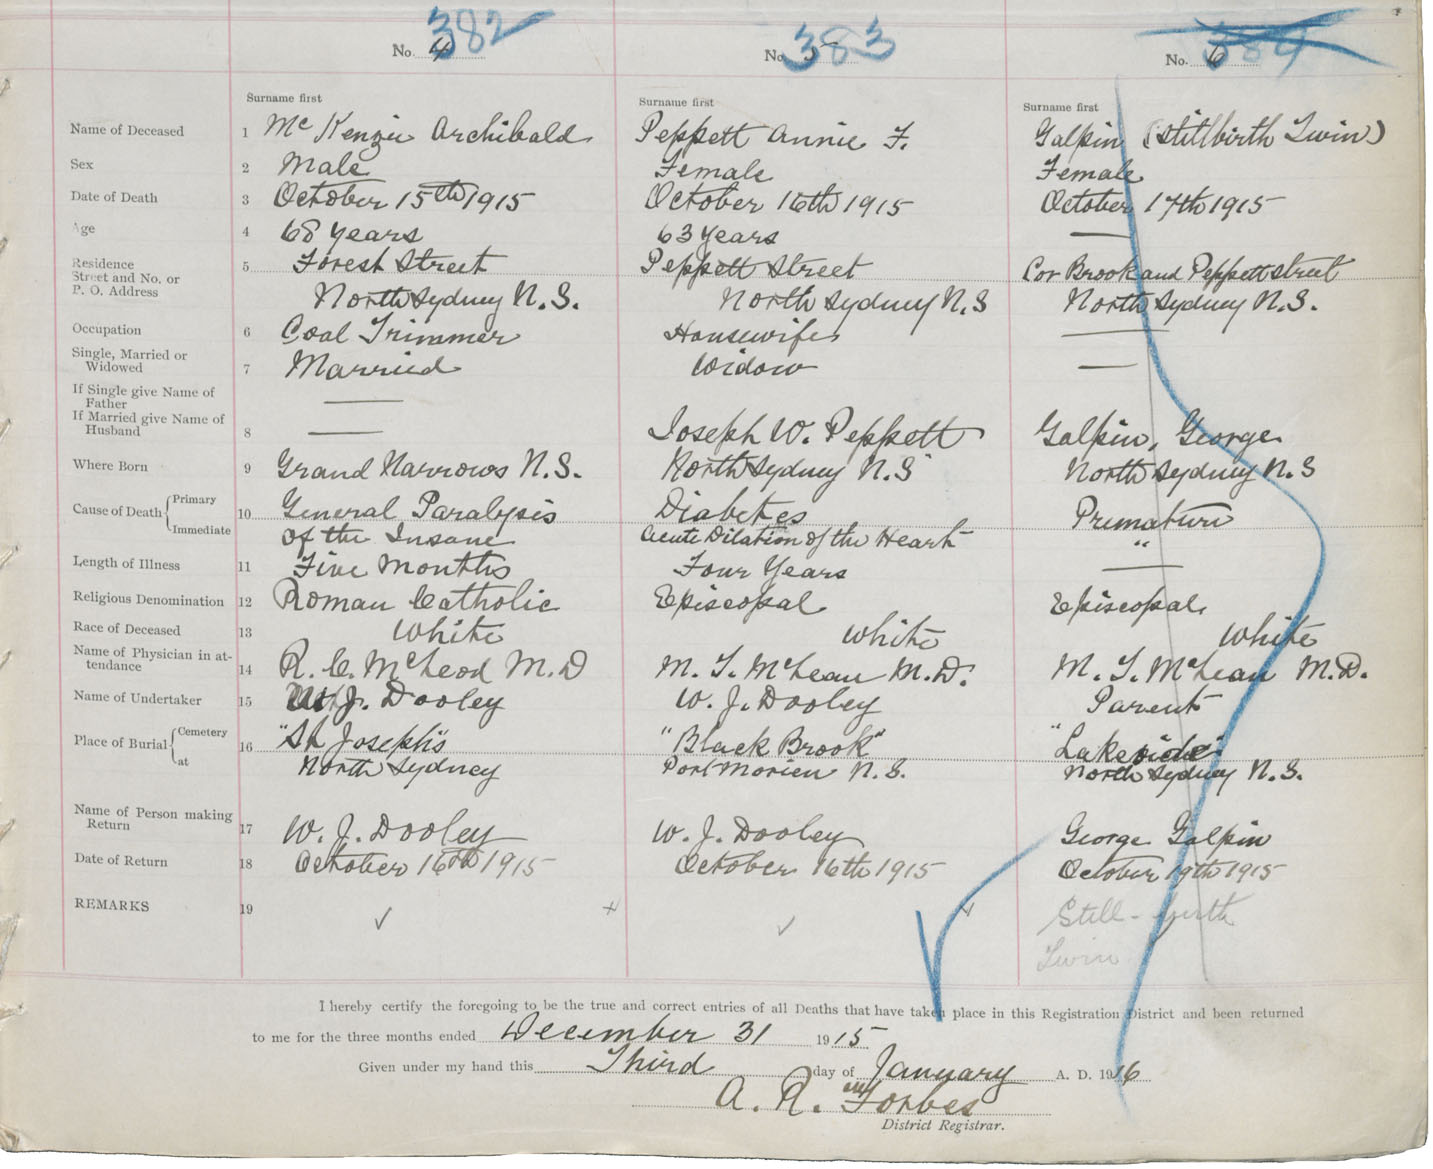 382 383 384
No. 4 No. 5 No. 6
Surname first Surname first Surname first
Name of Deceased 1 McKenzie Archibald Peppett Annie F. Galpin (Stillbirth Twin)
Sex 2 Male Female Female
Date of Death 3 October 15th 1915 October 16th 1915 October 17th 1915
Age 4 68 years 63 years —
Residence
Street and No. or 5 Forest Street Peppett Street Cor Brook and Peppett street
P. O. Address North Sydney N.S. North Sydney N.S North Sydney N.S.
Occupation 6 Coal Trimmer Housewife —
Single, Married or
Widowed 7 Married Widow —
If Single give Name of
Father —
If Married give Name of
Husband 8 — Joseph W. Peppett Galpin, George
Where Born 9 Grand Narrows N.S. North Sydney N.S North Sydney N.S
Cause of Death Primary 10 General Paralysis Diabetes Premature
Immediate of the Insane Acute Dilation of the Heart "
Length of Illness 11 Five Months Four Years —
Religious Denomination 12 Roman Catholic Episcopal Episcopal
Race of Deceased 13 White White White
Name of Physician in at-
tendance 14 R. C. McLeod M.D M. T. McLean M.D. M. T. McLean M.D.
Name of Undertaker 15 W. J. Dooley W. J. Dooley Parent
Place of Burial Cemetery 16 "St Joseph's "Black Brook" "Lakeside"
at North Sydney Port Morien N.S. North Sydney N.S.
Name of Person making
Return 17 W. J. Dooley W. J. Dooley George Galpin
Date of Return 18 October 16th 1915 October 16th 1915 October 19th 1915
REMARKS 19 ✓ + ✓ + Still-birth
Twin
I hereby certify the foregoing to be the true and correct entries of all Deaths that have taken place in this Registration District and been returned
to me for the three months ended December 31 1915
Given under my hand this Third day of January A. D. 1916
A. R. Forbes
District Registrar.